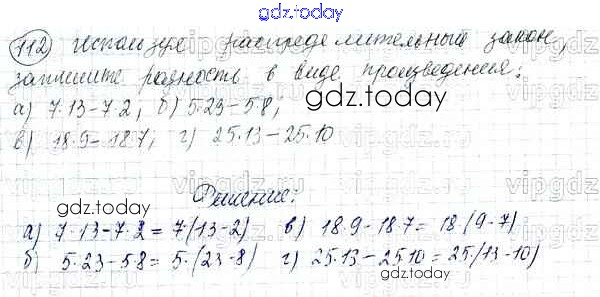 gdz.today
112) Используя распределительный закон,
запишите разность в виде произведения:
а) 7·13-7·2, б) 5·23-5·8,
gdz.today
в) 18·9-18·7, г) 25·13-25·10
Решение:
gdz.today
а) 7·13-7·2=7(13-2) в) 18·9-18·7=18(9-7)
б) 5·23-5·8=5·(23-8) г) 25·13-25·10=25·(13-10)
gdz.today